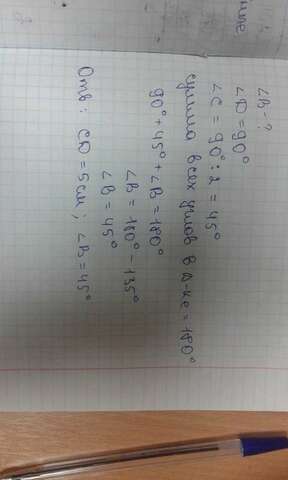 ∠B - ?
∠D = 90°
∠C = 90° : 2 = 45°
сумма всех углов в Δ-ке = 180°
90° + 45° + ∠B = 180°
∠B = 180° - 135°
∠B = 45°
Отв: CD = 5 см; ∠B = 45°